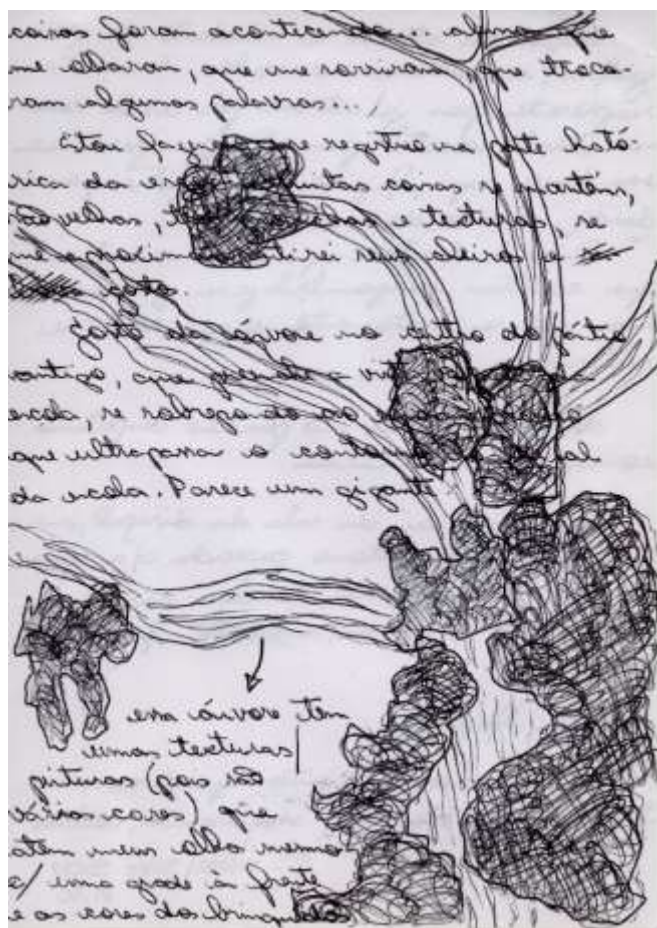 coisas foram acontecendo... alunos que
me olharam, que me sorriram, que troca-
ram algumas palavras...
Estou fazendo esse registro na parte histó-
rica da escola. muitas coisas se mantém,
são velhas, e texturas, se
me aproximar sentirei seus cheiros e
gostos.
Gosto da árvore no centro do pátio
antigo, que preenche a
escola, se sobrepondo ao
que ultrapassa o contorno
da escola. Parece um gigante.
essa árvore tem
umas texturas/
pinturas (pois são
várias cores) que
atém meu olho mesmo
c/ uma grade à frente
e as cores dos brinquedos